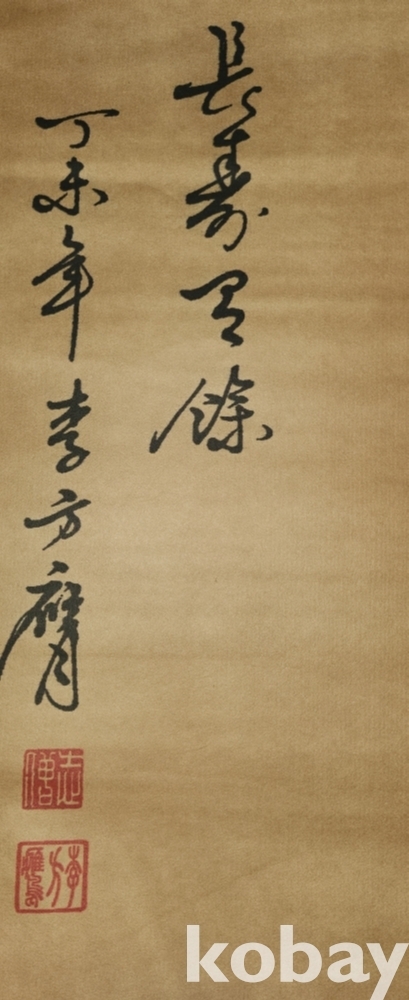 長壽有餘
丁未年李方膺
李方膺
kobay